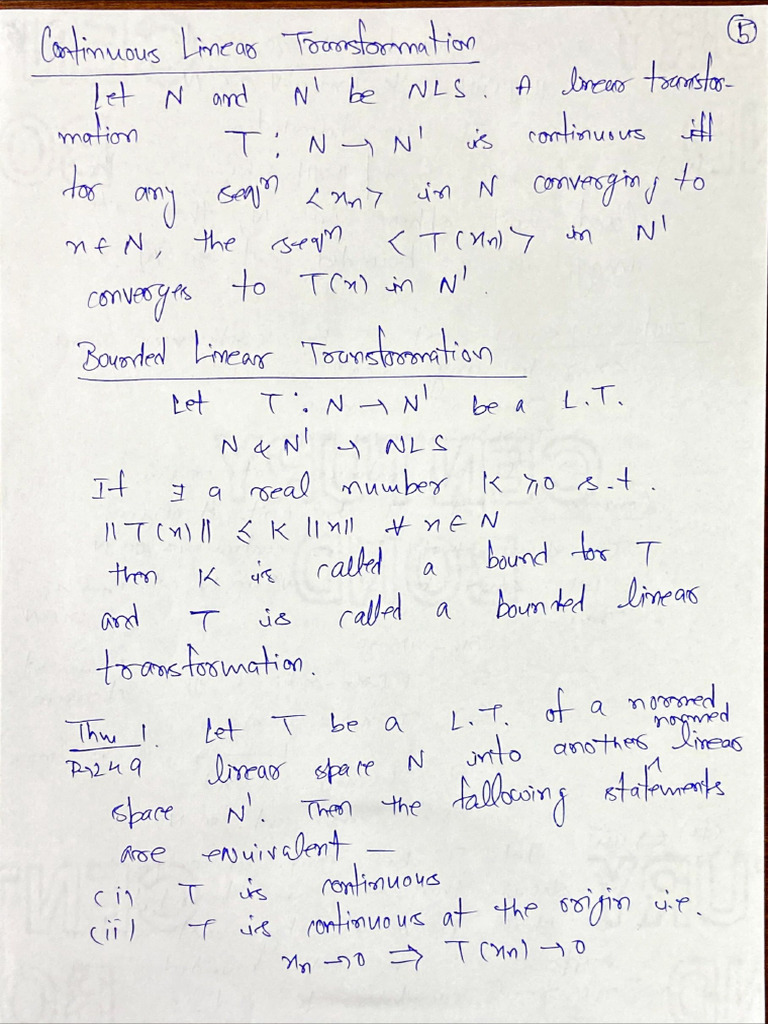 5
Continuous Linear Transformation
Let N and N' be NLS. A linear transfor-
mation T : N → N' is continuous iff
for any seqⁿ <xn> in N converging to
x ∈ N, the seqⁿ <T(xn)> in N'
converges to T(x) in N'.
Bounded Linear Transformation
Let T : N → N' be a L.T.
N & N' → NLS
If ∃ a real number K ≥ 0 s.t.
||T(x)|| ≤ K ||x|| ∀ x ∈ N
then K is called a bound for T
and T is called a bounded linear
transformation.
Thm 1. Let T be a L.T. of a normed
normed
P-249 linear space N into another ^ linear
space N'. Then the following statements
are equivalent —
(i) T is continuous
(ii) T is continuous at the origin i.e.
xn → 0 ⇒ T(xn) → 0